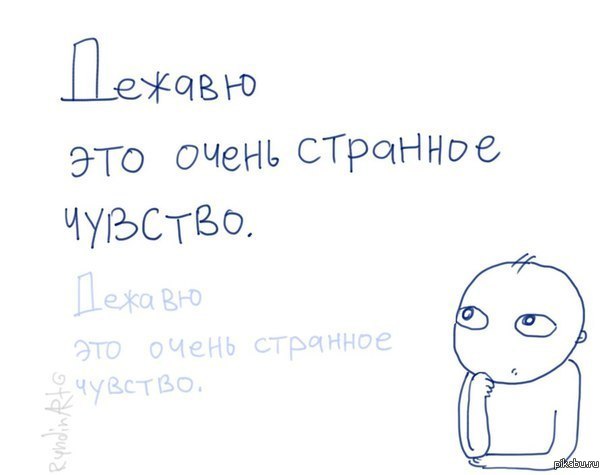 Дежавю
это очень странное
чувство.
Дежавю
это очень странное
чувство.
RyndinArtG
pikabu.ru